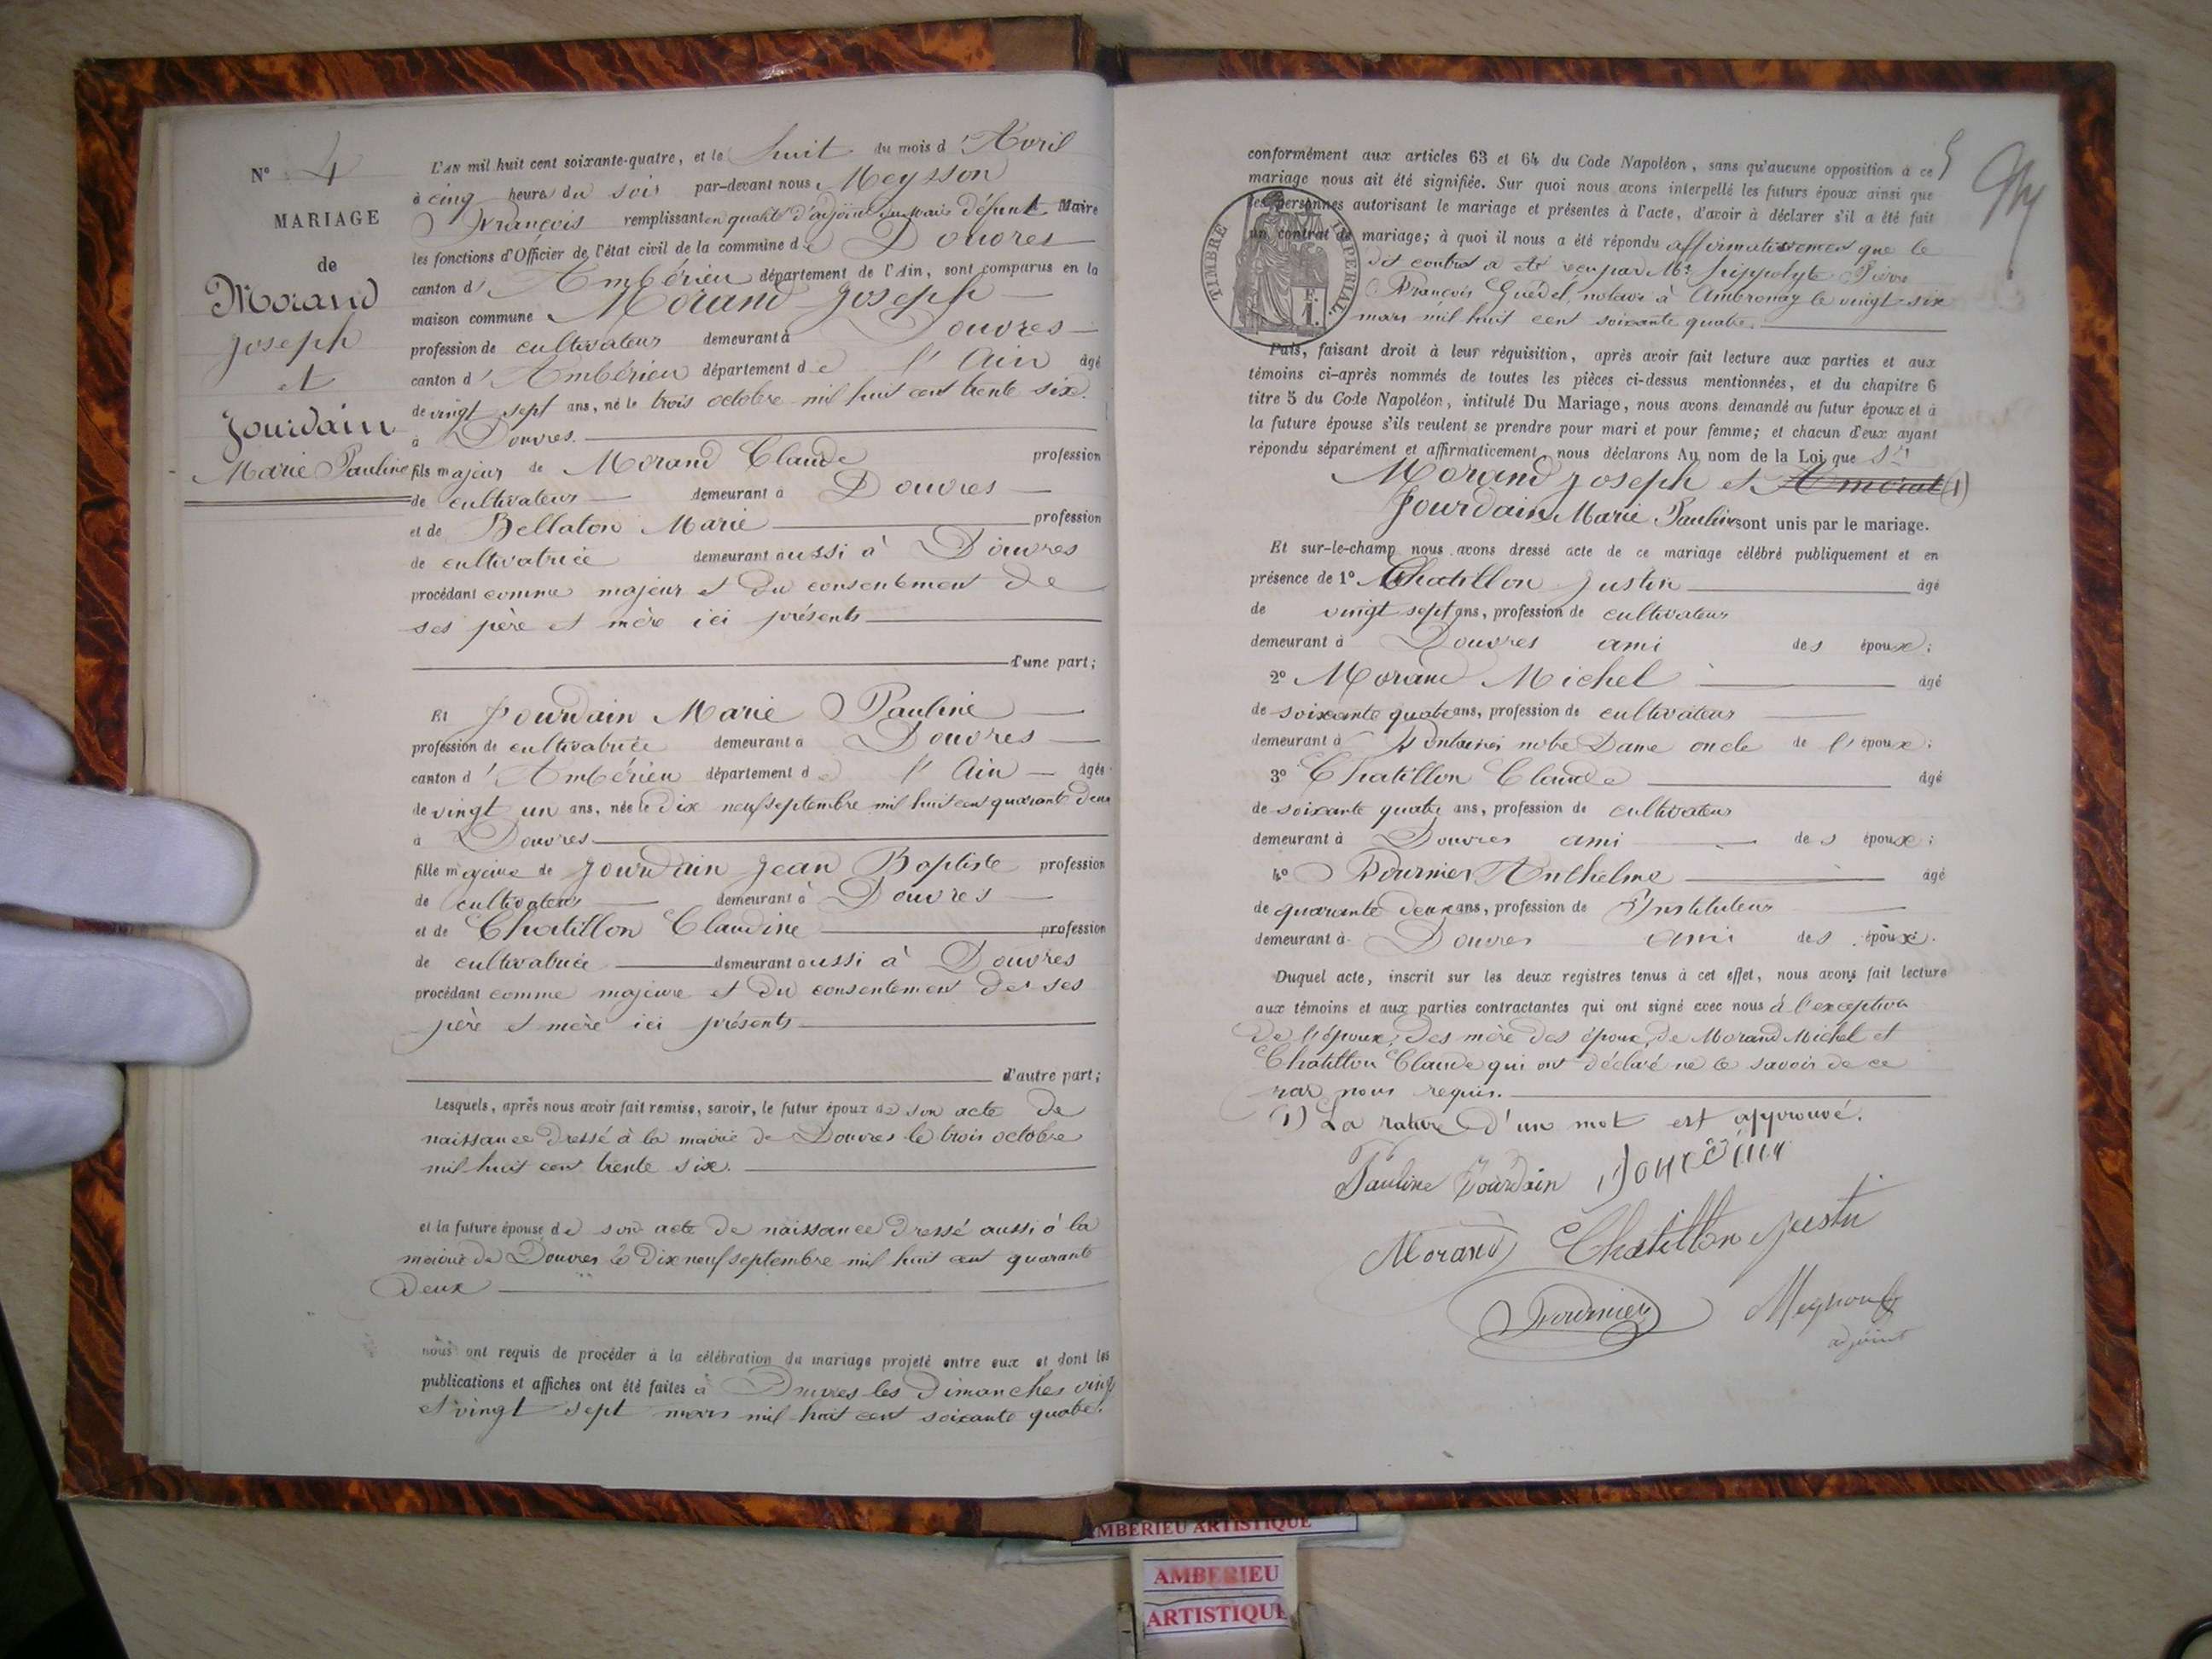 N° 4
MARIAGE
de
Morand
Joseph
et
Jourdain
Marie Pauline
L'AN mil huit cent soixante-quatre, et le huit du mois d'Avril
à cinq heures du soir par-devant nous, Meysson
François remplissant en qualité d'adjoint du maire défunt Maire
les fonctions d'Officier de l'état civil de la commune de Douvres
canton d'Ambérieu département de l'Ain, sont comparus en la
maison commune Morand Joseph
profession de cultivateur demeurant à Douvres
canton d'Ambérieu département de l'Ain âgé
de vingt sept ans, né le trois octobre mil huit cent trente six.
à Douvres.
fils majeur de Morand Claude profession
de cultivateur demeurant à Douvres
et de Bellaton Marie profession
de cultivatrice demeurant aussi à Douvres
procédant comme majeur et du consentement de
ses père et mère ici présents
d'une part;
Et Jourdain Marie Pauline
profession de cultivatrice demeurant à Douvres
canton d'Ambérieu département de l'Ain âgée
de vingt un ans, née le dix neuf septembre mil huit cent quarante deux
à Douvres
fille majeure de Jourdain Jean Baptiste profession
de cultivateur demeurant à Douvres
et de Chatillon Claudine profession
de cultivatrice demeurant aussi à Douvres
procédant comme majeure et du consentement de ses
père et mère ici présents
d'autre part;
Lesquels, après nous avoir fait remise, savoir, le futur époux de son acte de
naissance dressé à la mairie de Douvres le trois octobre
mil huit cent trente six.
et la future épouse de son acte de naissance dressé aussi à la
mairie de Douvres le dix neuf septembre mil huit cent quarante
deux
nous ont requis de procéder à la célébration du mariage projeté entre eux et dont les
publications et affiches ont été faites à Douvres les dimanches vingt
et vingt sept mars mil huit cent soixante quatre.
5
conformément aux articles 63 et 64 du Code Napoléon, sans qu'aucune opposition à ce
mariage nous ait été signifiée. Sur quoi nous avons interpellé les futurs époux ainsi que
les personnes autorisant le mariage et présentes à l'acte, d'avoir à déclarer s'il a été fait
un contrat de mariage; à quoi il nous a été répondu affirmativement que le
dit contrat a été reçu par Me Hippolyte Pierre
François Guédel, notaire à Ambronay le vingt-six
mars mil huit cent soixante quatre.
TIMBRE IMPERIAL.
Puis, faisant droit à leur réquisition, après avoir fait lecture aux parties et aux
témoins ci-après nommés de toutes les pièces ci-dessus mentionnées, et du chapitre 6
titre 5 du Code Napoléon, intitulé Du Mariage, nous avons demandé au futur époux et à
la future épouse s'ils veulent se prendre pour mari et pour femme; et chacun d'eux ayant
répondu séparément et affirmativement, nous déclarons Au nom de la Loi que
Morand Joseph et (1)
Jourdain Marie Pauline sont unis par le mariage.
Et sur-le-champ nous avons dressé acte de ce mariage célébré publiquement et en
présence de 1° Chatillon Justin âgé
de vingt sept ans, profession de cultivateur
demeurant à Douvres ami des époux;
2° Morand Michel âgé
de soixante quatre ans, profession de cultivateur
demeurant à notre Dame oncle de l'époux;
3° Chatillon Claude âgé
de soixante quatre ans, profession de cultivateur
demeurant à Douvres ami des époux;
4° Fournier Anthelme âgé
de quarante deux ans, profession de Instituteur
demeurant à Douvres ami des époux.
Duquel acte, inscrit sur les deux registres tenus à cet effet, nous avons fait lecture
aux témoins et aux parties contractantes qui ont signé avec nous à l'exception
de l'époux, des mère des époux, de Morand Michel et
Chatillon Claude qui ont déclaré ne le savoir de ce
par nous requis.
(1) La rature d'un mot est approuvé.
Pauline Jourdain Jourdain
Morand Chatillon Justin
Fournier
adjoint
AMBERIEU ARTISTIQUE
AMBERIEU
ARTISTIQUE